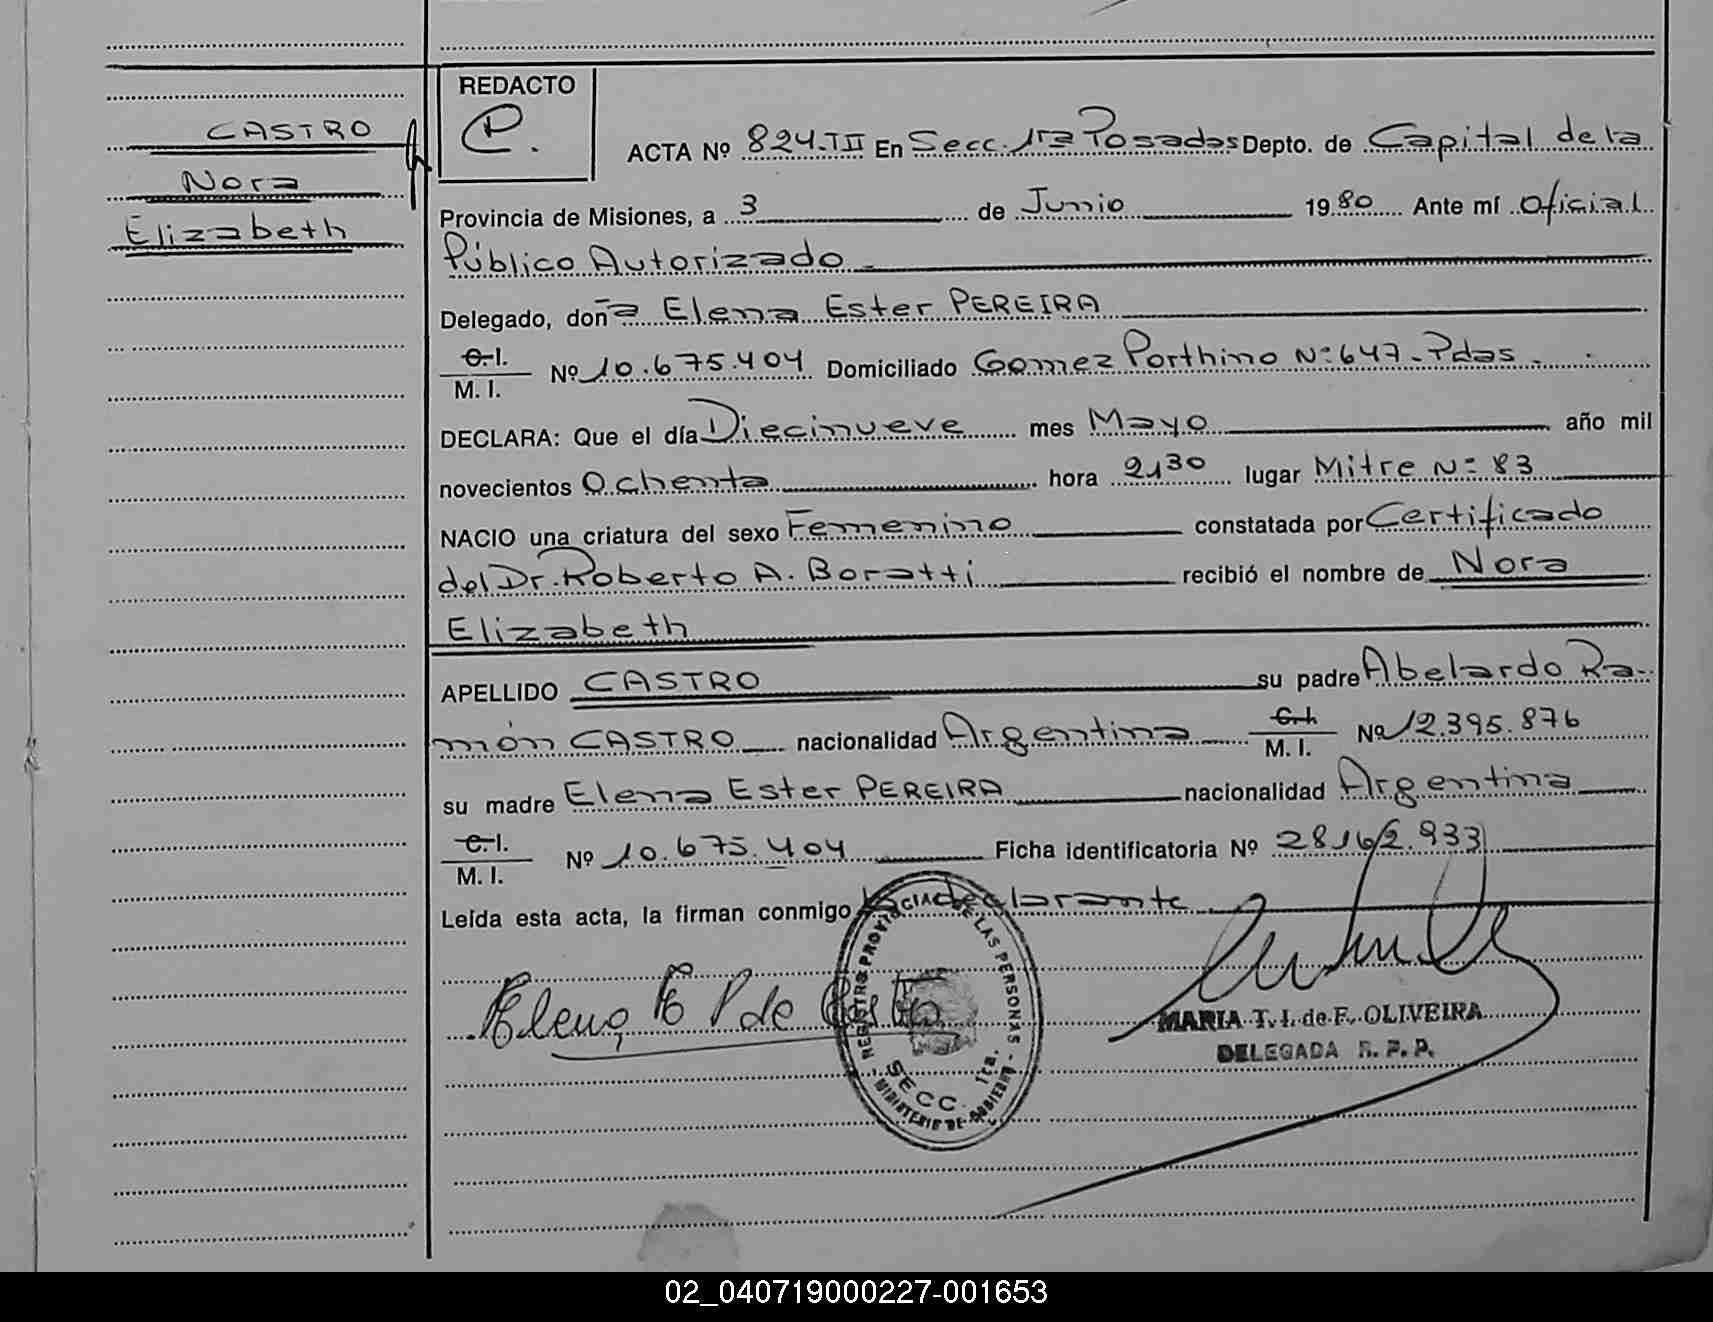 REDACTO
CASTRO
Nora
Elizabeth
P.
ACTA Nº 824-TII En Secc. 1ra Posadas Depto. de Capital de la
Provincia de Misiones, a 3 de Junio 1980 Ante mí Oficial
Público Autorizado
Delegado, doña Elena Ester PEREIRA
C.I.
M. I. Nº 10.675.404 Domiciliado Gomez Porthino Nº 647-Pdas.
DECLARA: Que el día Diecinueve mes Mayo año mil
novecientos Ochenta hora 21,30 lugar Mitre Nº 83
NACIO una criatura del sexo Femenino constatada por Certificado
del Dr. Roberto A. Boratti recibió el nombre de Nora
Elizabeth
APELLIDO CASTRO su padre Abelardo Ra-
món CASTRO nacionalidad Argentina C.I.
M. I. Nº 12.395.876
su madre Elena Ester PEREIRA nacionalidad Argentina
C.I.
M. I. Nº 10.675.404 Ficha identificatoria Nº 2816/2.933
Leída esta acta, la firman conmigo la declarante
Elena E P de Castro
REGISTRO PROVINCIAL DE LAS PERSONAS - MINISTERIO DE GOBIERNO -
SECC. 1ra.
MARIA T. I. de F. OLIVEIRA
DELEGADA R. P. P.
02_040719000227-001653